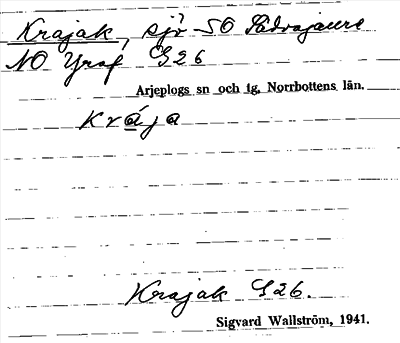 Krajak, sjö SO Sädvajaure
NO Yraf S26
Arjeplogs sn och tg, Norrbottens län.
Kråja
Krajak S26.
Sigvard Wallström, 1941.